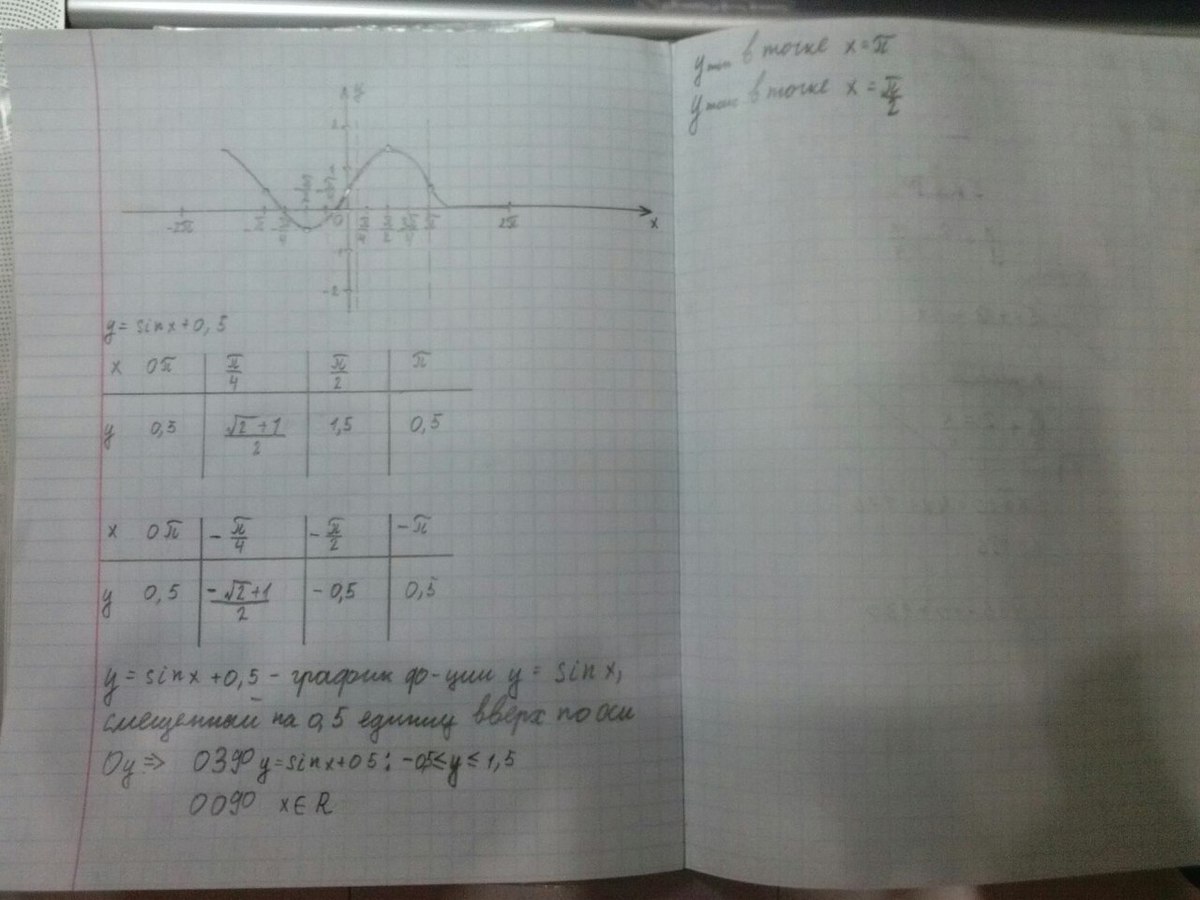 y
2
1
-2π -π -3π/4 -π/2 -π/4 0 π/4 π/2 3π/4 π 2π x
-1
-2
y = sin x + 0,5
x 0π π/4 π/2 π
y 0,5 (√2 + 1)/2 1,5 0,5
x 0π -π/4 -π/2 -π
y 0,5 (-√2+1)/2 -0,5 0,5
y = sin x + 0,5 - график ф-ции y = sin x,
смещенный на 0,5 единиц вверх по оси
Oy => ОЗФ y=sinx+0,5: -0,5≤y≤1,5
ООФ x∈R
y min в точке x = π
y макс в точке x = π/2